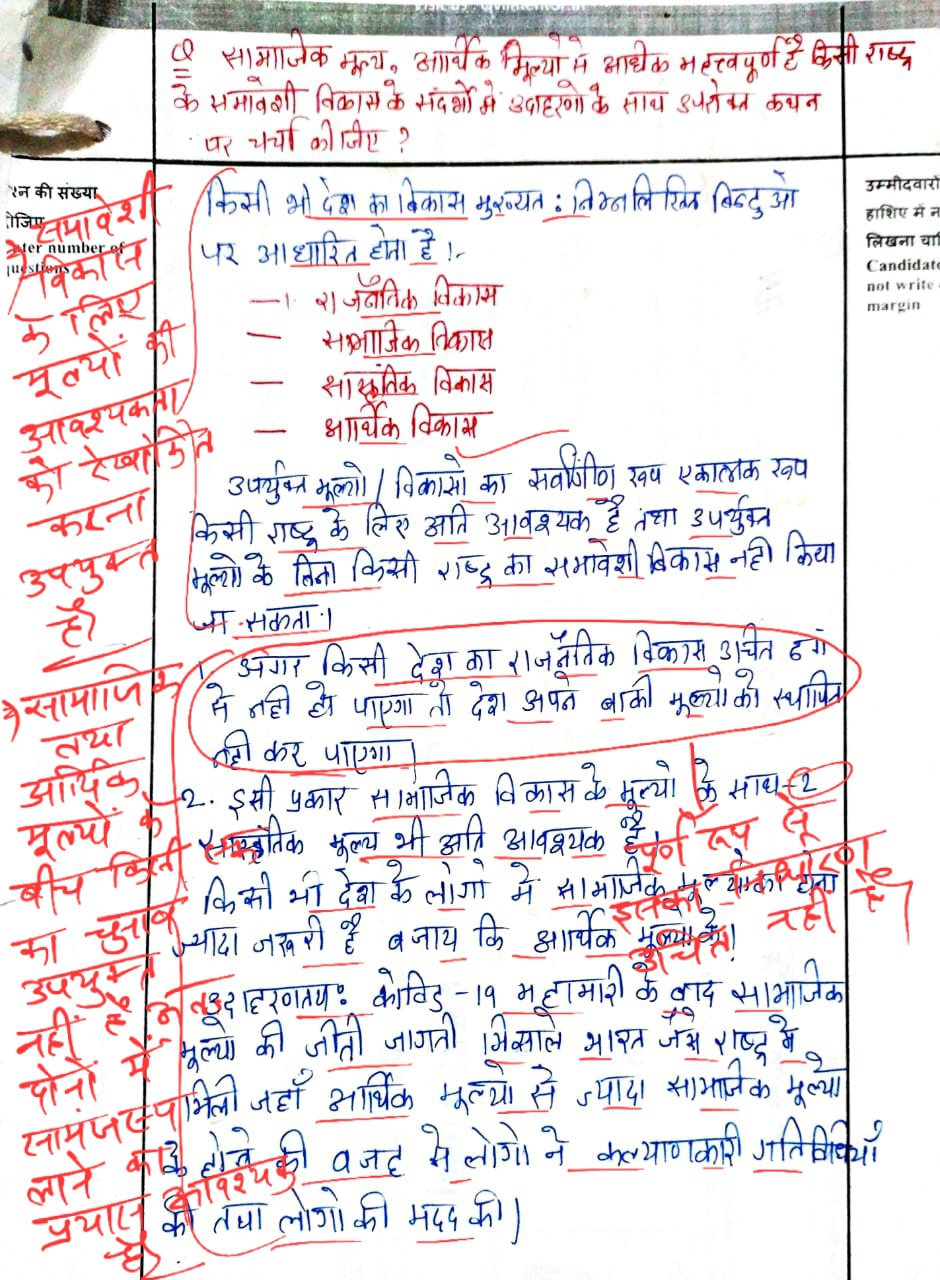 Q सामाजिक मूल्य, आर्थिक मूल्यो से अधिक महत्त्वपूर्ण है किसी राष्ट्र
के समावेशी विकास के संदर्भो मे उदाहरणो के साथ उपरोक्त कथन
पर चर्चा कीजिए ?
किसी भी देश का विकास मुख्यतः निम्नलिखित बिन्दुओ
पर आधारित होता है।-
—1. राजनैतिक विकास
— सामाजिक विकास
— सांस्कृतिक विकास
— आर्थिक विकास
उपर्युक्त मूल्यो / विकासो का सर्वांगीण रूप एकात्मक रूप
किसी राष्ट्र के लिए अति आवश्यक है तथा उपर्युक्त
मूल्यो के बिना किसी राष्ट्र का समावेशी विकास नही किया
जा सकता।
1. अगर किसी देश का राजनैतिक विकास उचित ढंग
से नही हो पाएगा तो देश अपने बाकी मूल्यो को स्थापित
नही कर पाएगा।
2. इसी प्रकार सामाजिक विकास के मूल्यो के साथ-2
सांस्कृतिक मूल्य भी अति आवश्यक है
किसी भी देश के लोगो मे सामाजिक मूल्यो का होना
ज्यादा जरूरी है बजाय कि आर्थिक मूल्यो के।
उदाहरणतयः कोविड-19 महामारी के बाद सामाजिक
मूल्यो की जीती जागती मिसाले भारत जैसे राष्ट्र मे
मिली जहाँ आर्थिक मूल्यो से ज्यादा सामाजिक मूल्यो
के होने की वजह से लोगो ने कल्याणकारी गतिविधियाँ
की तथा लोगो की मदद की।
पूर्ण रूप से
इसका निर्धारण
उचित नहीं है।
रन की संख्या
ीजिए
ter number of
uestions
समावेशी
विकास
के लिए
मूल्यों की
आवश्यकता
को रेखांकित
करना
उपयुक्त
है।
सामाजिक
तथा
आर्थिक
मूल्यों के
बीच किसी
का चुनाव
उपयुक्त
नहीं है अतः
दोनों में
सामंजस्य
लाने का
प्रयास आवश्यक
है।
उम्मीदवारों
हाशिए में न
लिखना चाि
Candidate
not write
margin